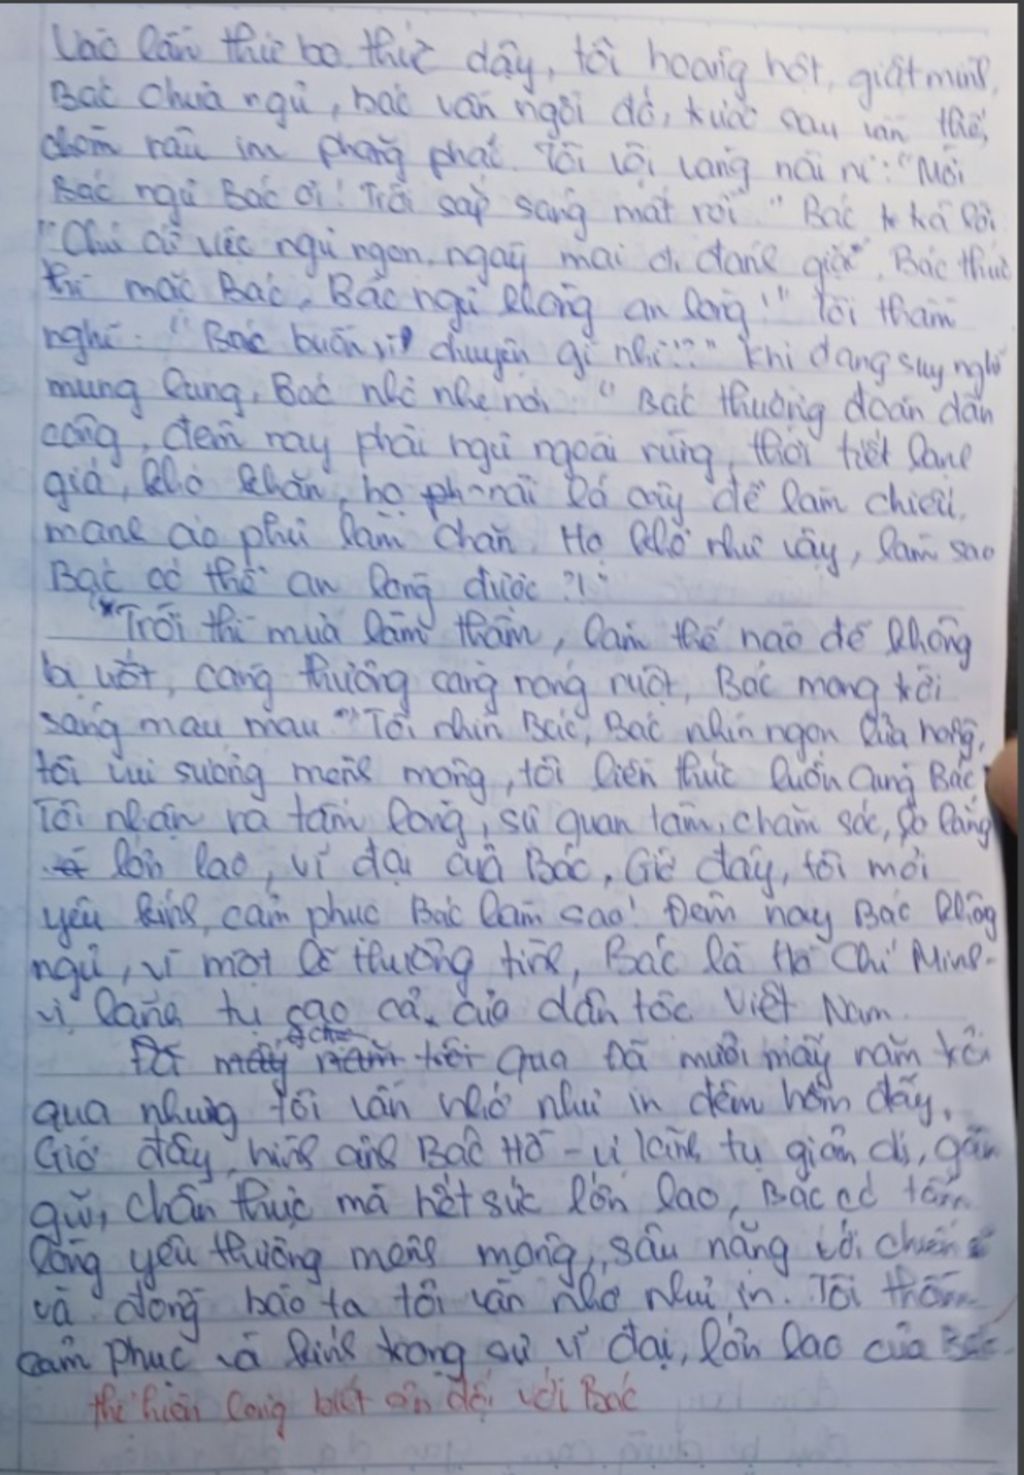 Vào lần thứ ba thức dậy, tôi hoảng hốt, giật mình,
Bác chưa ngủ, bác vẫn ngồi đó, trước sau vẫn thế,
chòm râu im phăng phắc. Tôi vội vàng nài nỉ: "Mời
Bác ngủ Bác ơi! Trời sắp sáng mất rồi" Bác trả lời
"Chú cứ việc ngủ ngon, ngày mai đi đánh giặc. Bác thức
thì mặc Bác. Bác ngủ không an lòng!" Tôi thầm
nghĩ: "Bác buồn vì chuyện gì nhỉ!?" Khi đang suy nghĩ
mung lung, Bác nhỏ nhẹ nói "Bác thương đoàn dân
công, đêm nay phải ngủ ngoài rừng, thời tiết lạnh
giá, khó khăn, họ phải lá cây để làm chiếu,
manh áo phủ làm chăn. Họ khổ như vậy, làm sao
Bác có thể an lòng được?!"
"Trời thì mưa lâm thâm, làm thế nào để không
bị ướt, càng thương càng nóng ruột, Bác mong trời
sáng mau mau" Tôi nhìn Bác, Bác nhìn ngọn lửa hồng,
tôi vui sướng mênh mông, tôi liền thức luôn cùng Bác
Tôi nhận ra tấm lòng, sự quan tâm, chăm sóc, lo lắng
lớn lao, vĩ đại của Bác, Giờ đây, tôi mới
yêu kính, cảm phục Bác làm sao! Đêm nay Bác không
ngủ, vì một lẽ thường tình, Bác là Hồ Chí Minh -
vị lãnh tụ cao cả của dân tộc Việt Nam.
qua Đã mười mấy năm trôi
qua nhưng tôi vẫn nhớ như in đêm hôm đấy.
Giờ đây, hình ảnh Bác Hồ - vị lãnh tụ giản dị, gần
gũi, chân thực mà hết sức lớn lao, Bác có tấm
lòng yêu thương mênh mông, sâu nặng với chiến sĩ
và đồng bào ta tôi vẫn nhớ như in. Tôi thầm
cảm phục và kính trọng sự vĩ đại, lớn lao của Bác.
thể hiện lòng biết ơn đối với Bác